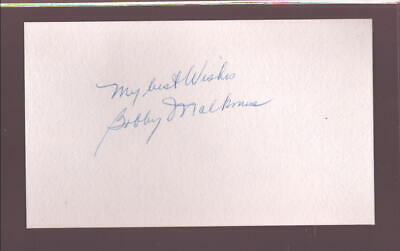 My best Wishes
Bobby Malkmus